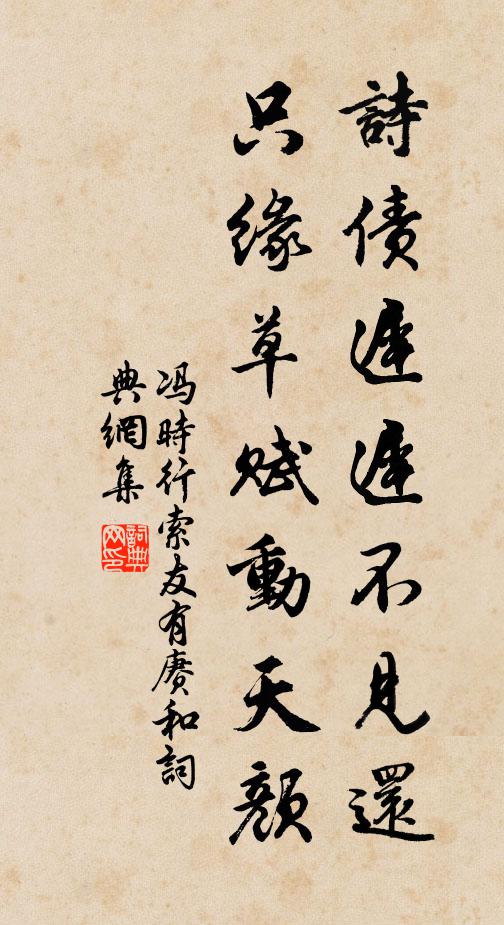 詩債遲遲不見還
只緣草賦動天顏
冯時行索友有賡和詞
典網集
詞典網印